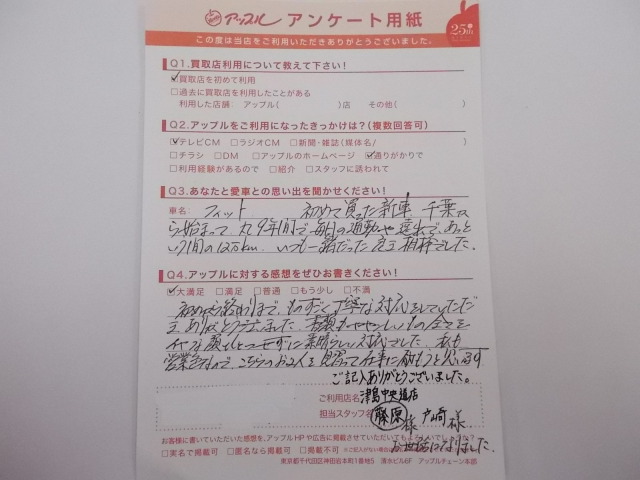 アップル アンケート用紙
25th
この度は当店をご利用いただきありがとうございました。
Q1.買取店利用について教えて下さい!
☑買取店を初めて利用
□過去に買取店を利用したことがある
利用した店舗: アップル( )店 その他( )
Q2.アップルをご利用になったきっかけは?(複数回答可)
☑テレビCM □ラジオCM □新聞・雑誌(媒体名/ )
□チラシ □DM □アップルのホームページ ☑通りがかりで
□利用経験があるので □紹介 □スタッフに誘われて
Q3.あなたと愛車との思い出を聞かせください!
車名: フィット 初めて買った新車 千葉か
ら始まって、丸9年間で毎日の通勤や遠出で、あっと
いう間の12万km、いつも一緒だった 相棒でした。
Q4.アップルに対する感想をぜひお書きください!
☑大満足 □満足 □普通 □もう少し □不満
初めから終わりまで、ものすごく丁寧な対応をしていただ
ありがとうございました。
せずに素晴らしい対応でした。私も
営業なので、こちらのお2人を見習って仕事に励もうと思います
ご記入ありがとうございました。
ご利用店名 津島中央道店
担当スタッフ名 藤原様 戸崎様
お世話になりました。
お客様に書いていただいた感想を、アップルHPや広告に掲載させていただいてもよろしいでしょうか?
□実名で掲載可 □匿名なら掲載可 □掲載不可
東京都千代田区神田岩本町1番地5 清水ビル6F アップルチェーン本部